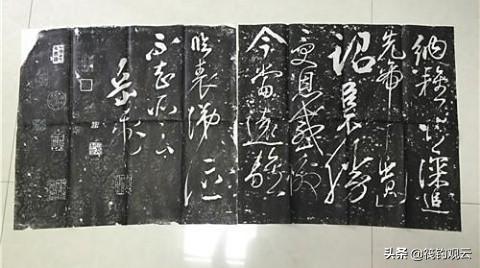 納雅言深追
先帝遺
詔臣不勝
受恩感激
今當遠離
臨表涕泣
不知所云
岳飛
头条 @筱钓观云